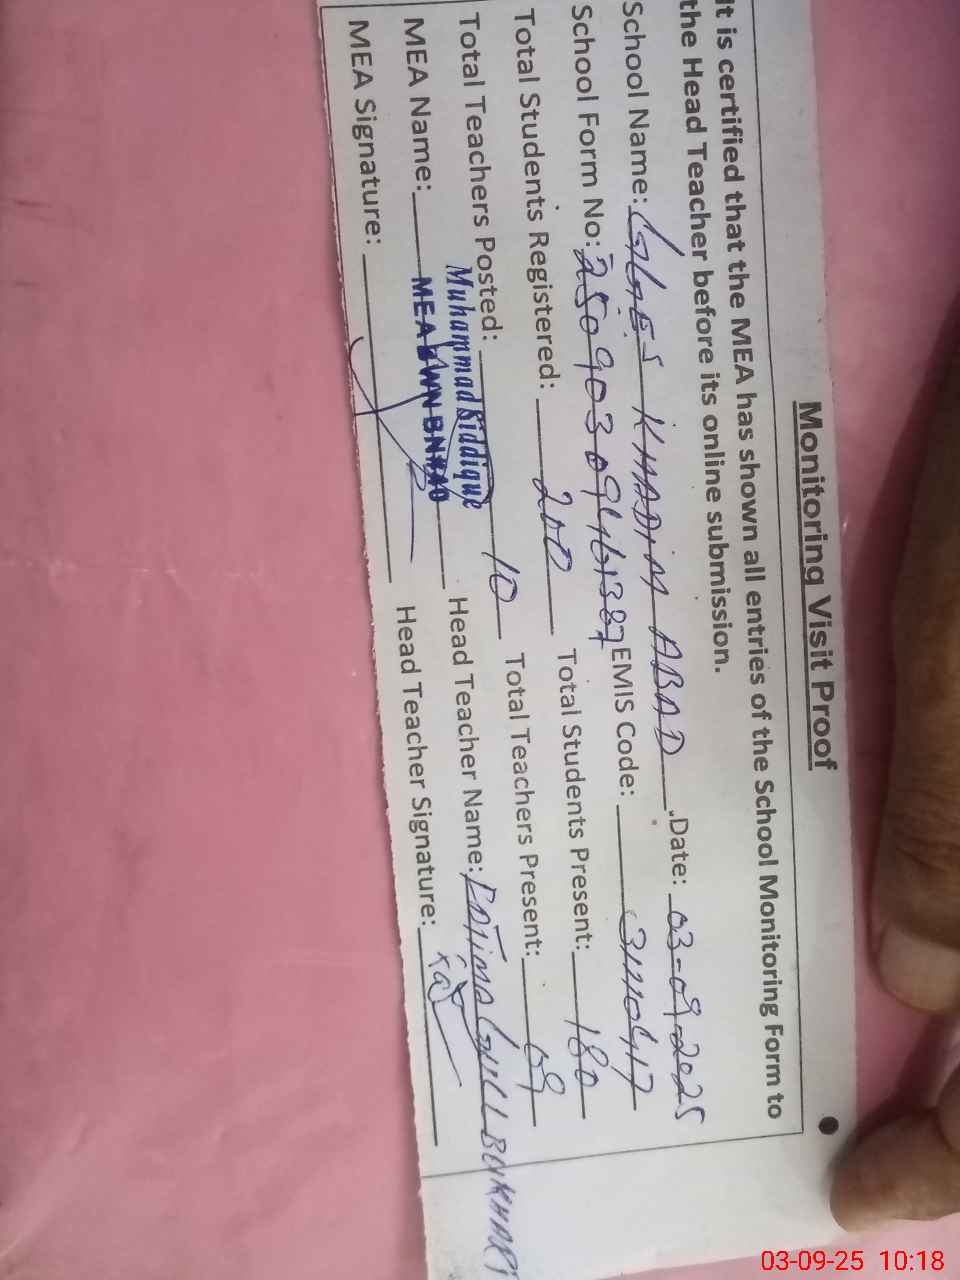 Monitoring Visit Proof
It is certified that the MEA has shown all entries of the School Monitoring Form to
the Head Teacher before its online submission.
School Name: GGES KHADIM ABAD .Date: 03-09-2025
School Form No: EMIS Code:
Total Students Registered: 200 Total Students Present: 180
Total Teachers Posted: 10 Total Teachers Present: 09
Muhammad Siddique
MEA Name: MEA BWN BNR Head Teacher Name: Fatima Gull BUKHARI
MEA Signature: Head Teacher Signature:
03-09-25 10:18